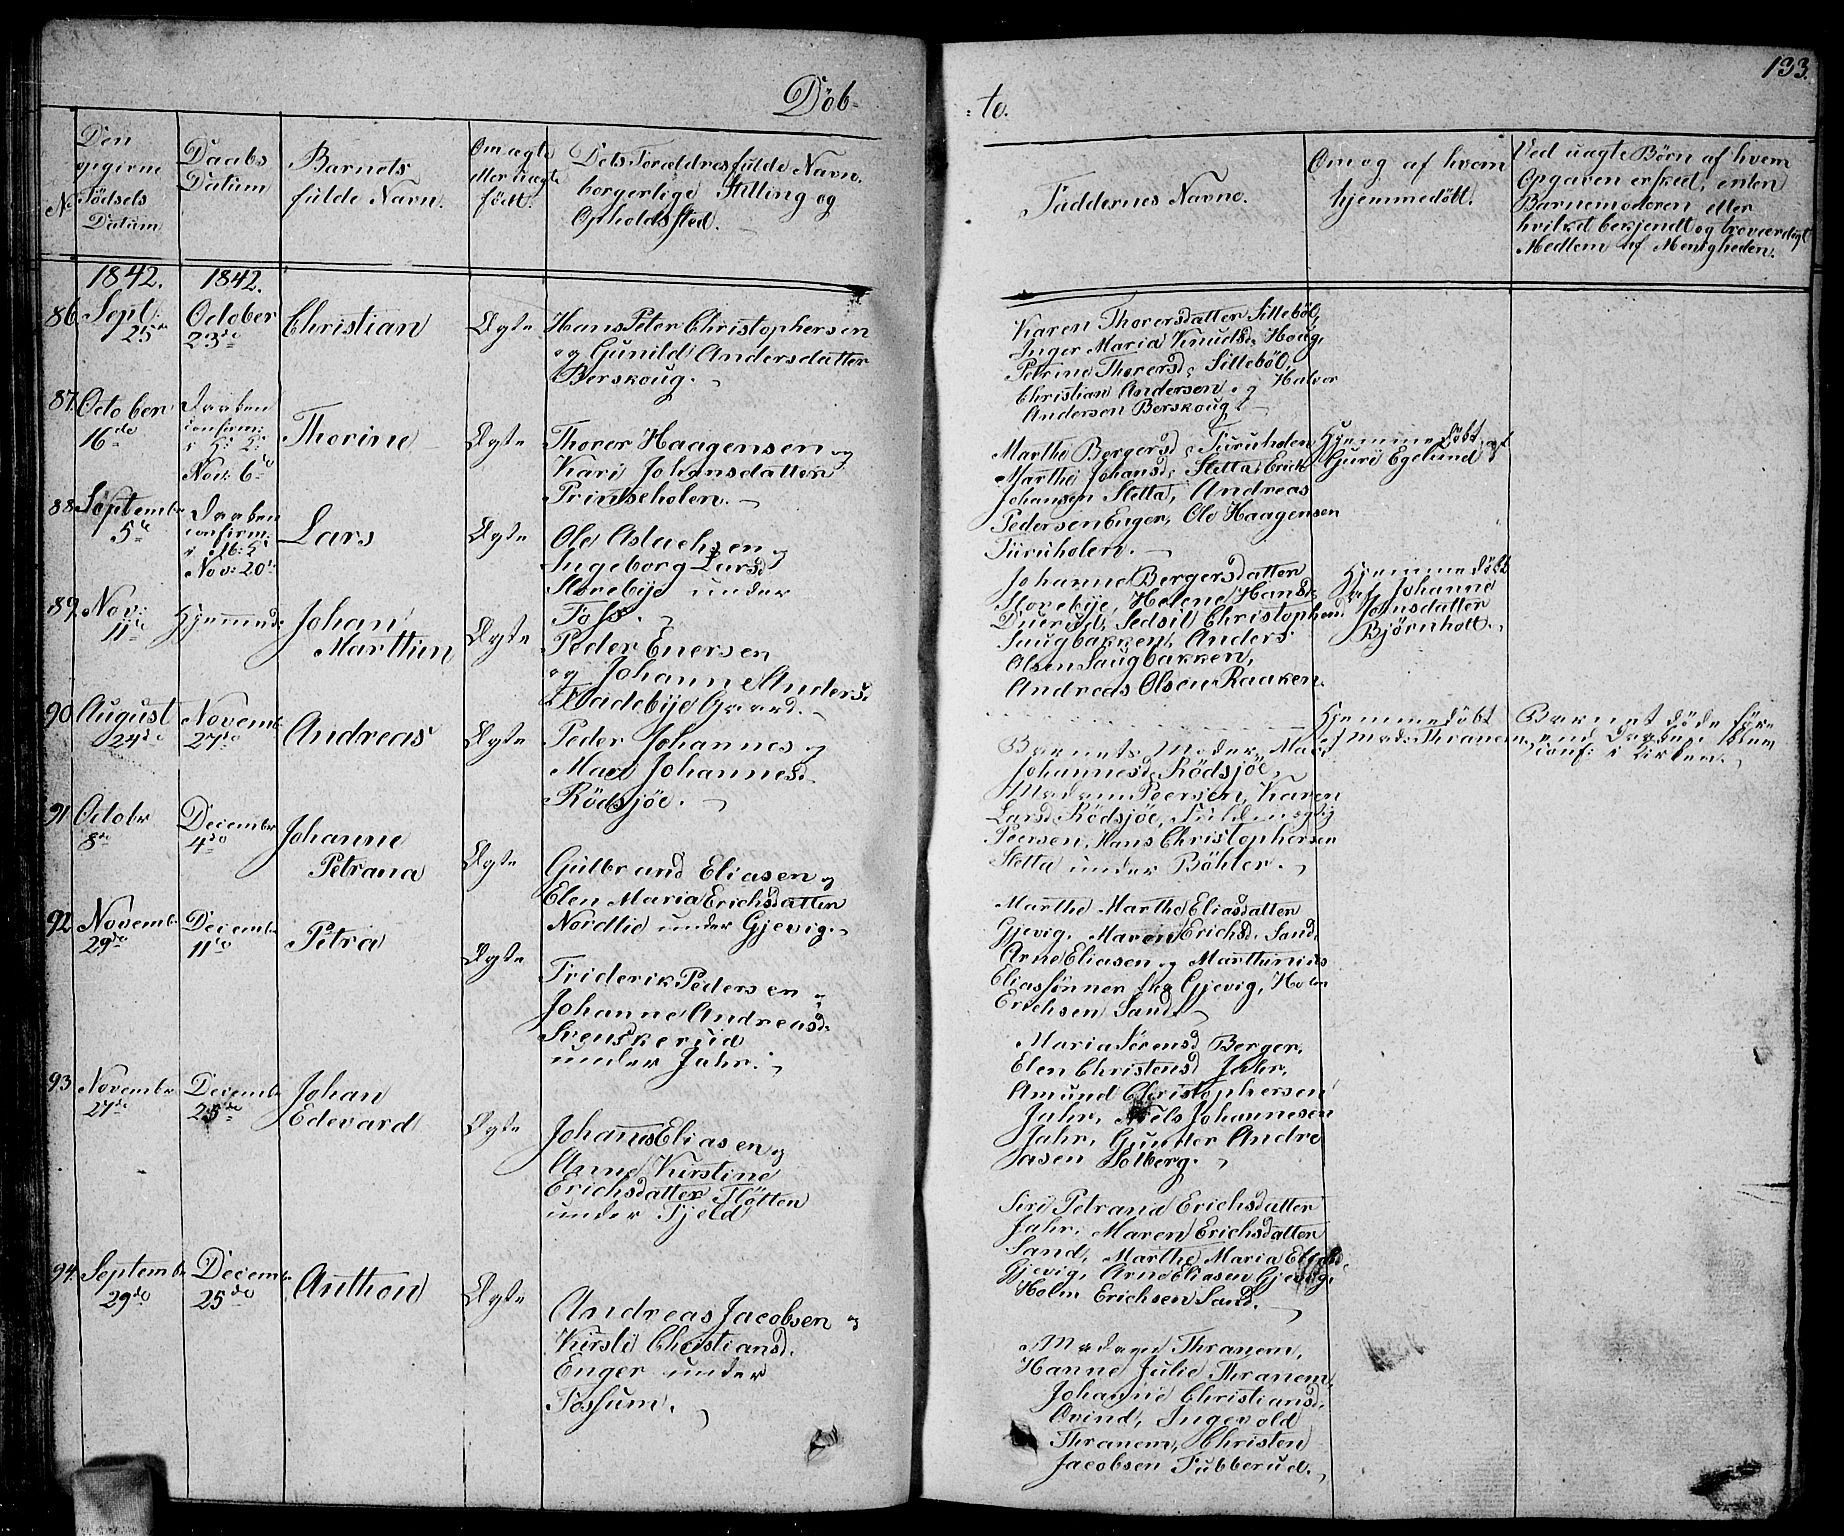 133.
Döb-
:te.
No
Den
opgivne
Födsels
Datum
Daabs
Datum
Barnets
fulde Navn.
Om ægte
eller uægte
födt.
Dets Forældres fulde Navn.
borgerlige Stilling og
Opholdssted.
Faddernes Navne.
Om og af hvem
hjemmedöbt.
Ved uægte Börn af hvem
Opgaven er skeed, enten
Barnemoderen eller
hvilket bekjendt og troværdigt
Medlem af Menigheden.
1842.
1842.
86.
Sept.
25de
October
23de
Christian
Ægte
Hans Peter Christophersen
og Gunild Andersdatter
Berskoug.
Karen Thorersdatter Silleböl,
Inger Maria Knudsd. Houg,
Petrine Thorersd. Silleböl,
Christian Andersen og Halvor
Andersen Berskoug
87.
October
16de
Daaben
confirm:
i H: K:
Nov: 6te
Thorine
Ægte
Thorer Haagensen og
Kari Johansdatter
Prinseholen.
Marthe Bergersd. Furuholen
Marthe Johansd. Sletta, Erick
Johansen Sletta, Andreas
Pedersen Enger, Ole Haagensen
Furuholen.
Hjemmedöbt af
Guri Egelund
88.
Septembr
5te
Daaben
confirm:
Nov: 20de
Lars
Ægte
Ole Aslachsen og
Ingeborg Larsd.
Storebye under
Foss.
Johanne Bergersdatter
Storebye, Helene Hansd.
Duerud, Sedsil Christophersd.
Saugbakken, Anders
Olsen Saugbakken,
Andreas Olsen Raaken.
Hjemmedöbt
af Johanne
Johnsdatter
Björnholt.
89.
Nov:
11te
Hjemmed:
Johan
Marthin
Ægte
Peder Enersen
og Johanne Andersd.
Fladebye Gaard.
Hjemmedöbt
af Mad: Thranem
Barnet döde före
end Daaben blev
conf: i Kirken.
90.
August
24de
Novembr
27de
Andreas
Ægte
Peder Johannes og
Mari Johannesd.
Rödsjöe.
Barnets Moder, Mari
Johannesd. Rödsjöe,
Madam Peersen, Karen
Larsd. Rödsjöe, Fuldmegtig
Peersen, Hans Christophersen
Sletta under Böhler.
91.
Octobr
8de
Decembr
4de
Johanne
Petrana
Ægte
Gulbrand Eliasen og
Elen Maria Erichsdatter
Nordlie under Gjevig.
Marthe Marthe Eliasdatter
Gjevig, Maren Erichsd. Sand,
Arne Eliasen og Marthinius
Eliassönner fra Gjevig, Holm
Erichsen Sand.
92.
Novembr
29de
Decembr
11te
Petra
Ægte
Friderik Pedersen og
Johanne Andreasd.
Svenskerud
under Jahr.
Maria Sörensd Berger,
Elen Christensd Jahr,
Amund Christophersen
Jahr, Niels Johannesen
Jahr, Gunder Andre
asen Solberg.
93.
Novembr
27de
Decembr
25de
Johan
Edevard
Ægte
Johanes Eliasen og
Anne Kirstine
Erichsdatter Fløtten
under Fjeld
Siri Petrana Erichsdatter
Jahr, Maren Erichsdatter
Sand, Marthe Maria Eliasd.
Gjevig, Arne Eliasen Gjevig,
Holm Erichsen Sand.
94.
Septembr
29de
Decembr
25de
Anthon
Ægte
Andreas Jacobsen og
Kirsti Christiansd.
Enger under
Fossum.
Madam Thranem,
Hanne Julie Thranem,
Johanne Christiansd.
Ovind, Ingevold
Thranem, Christen
Jacobsen Tubberud.